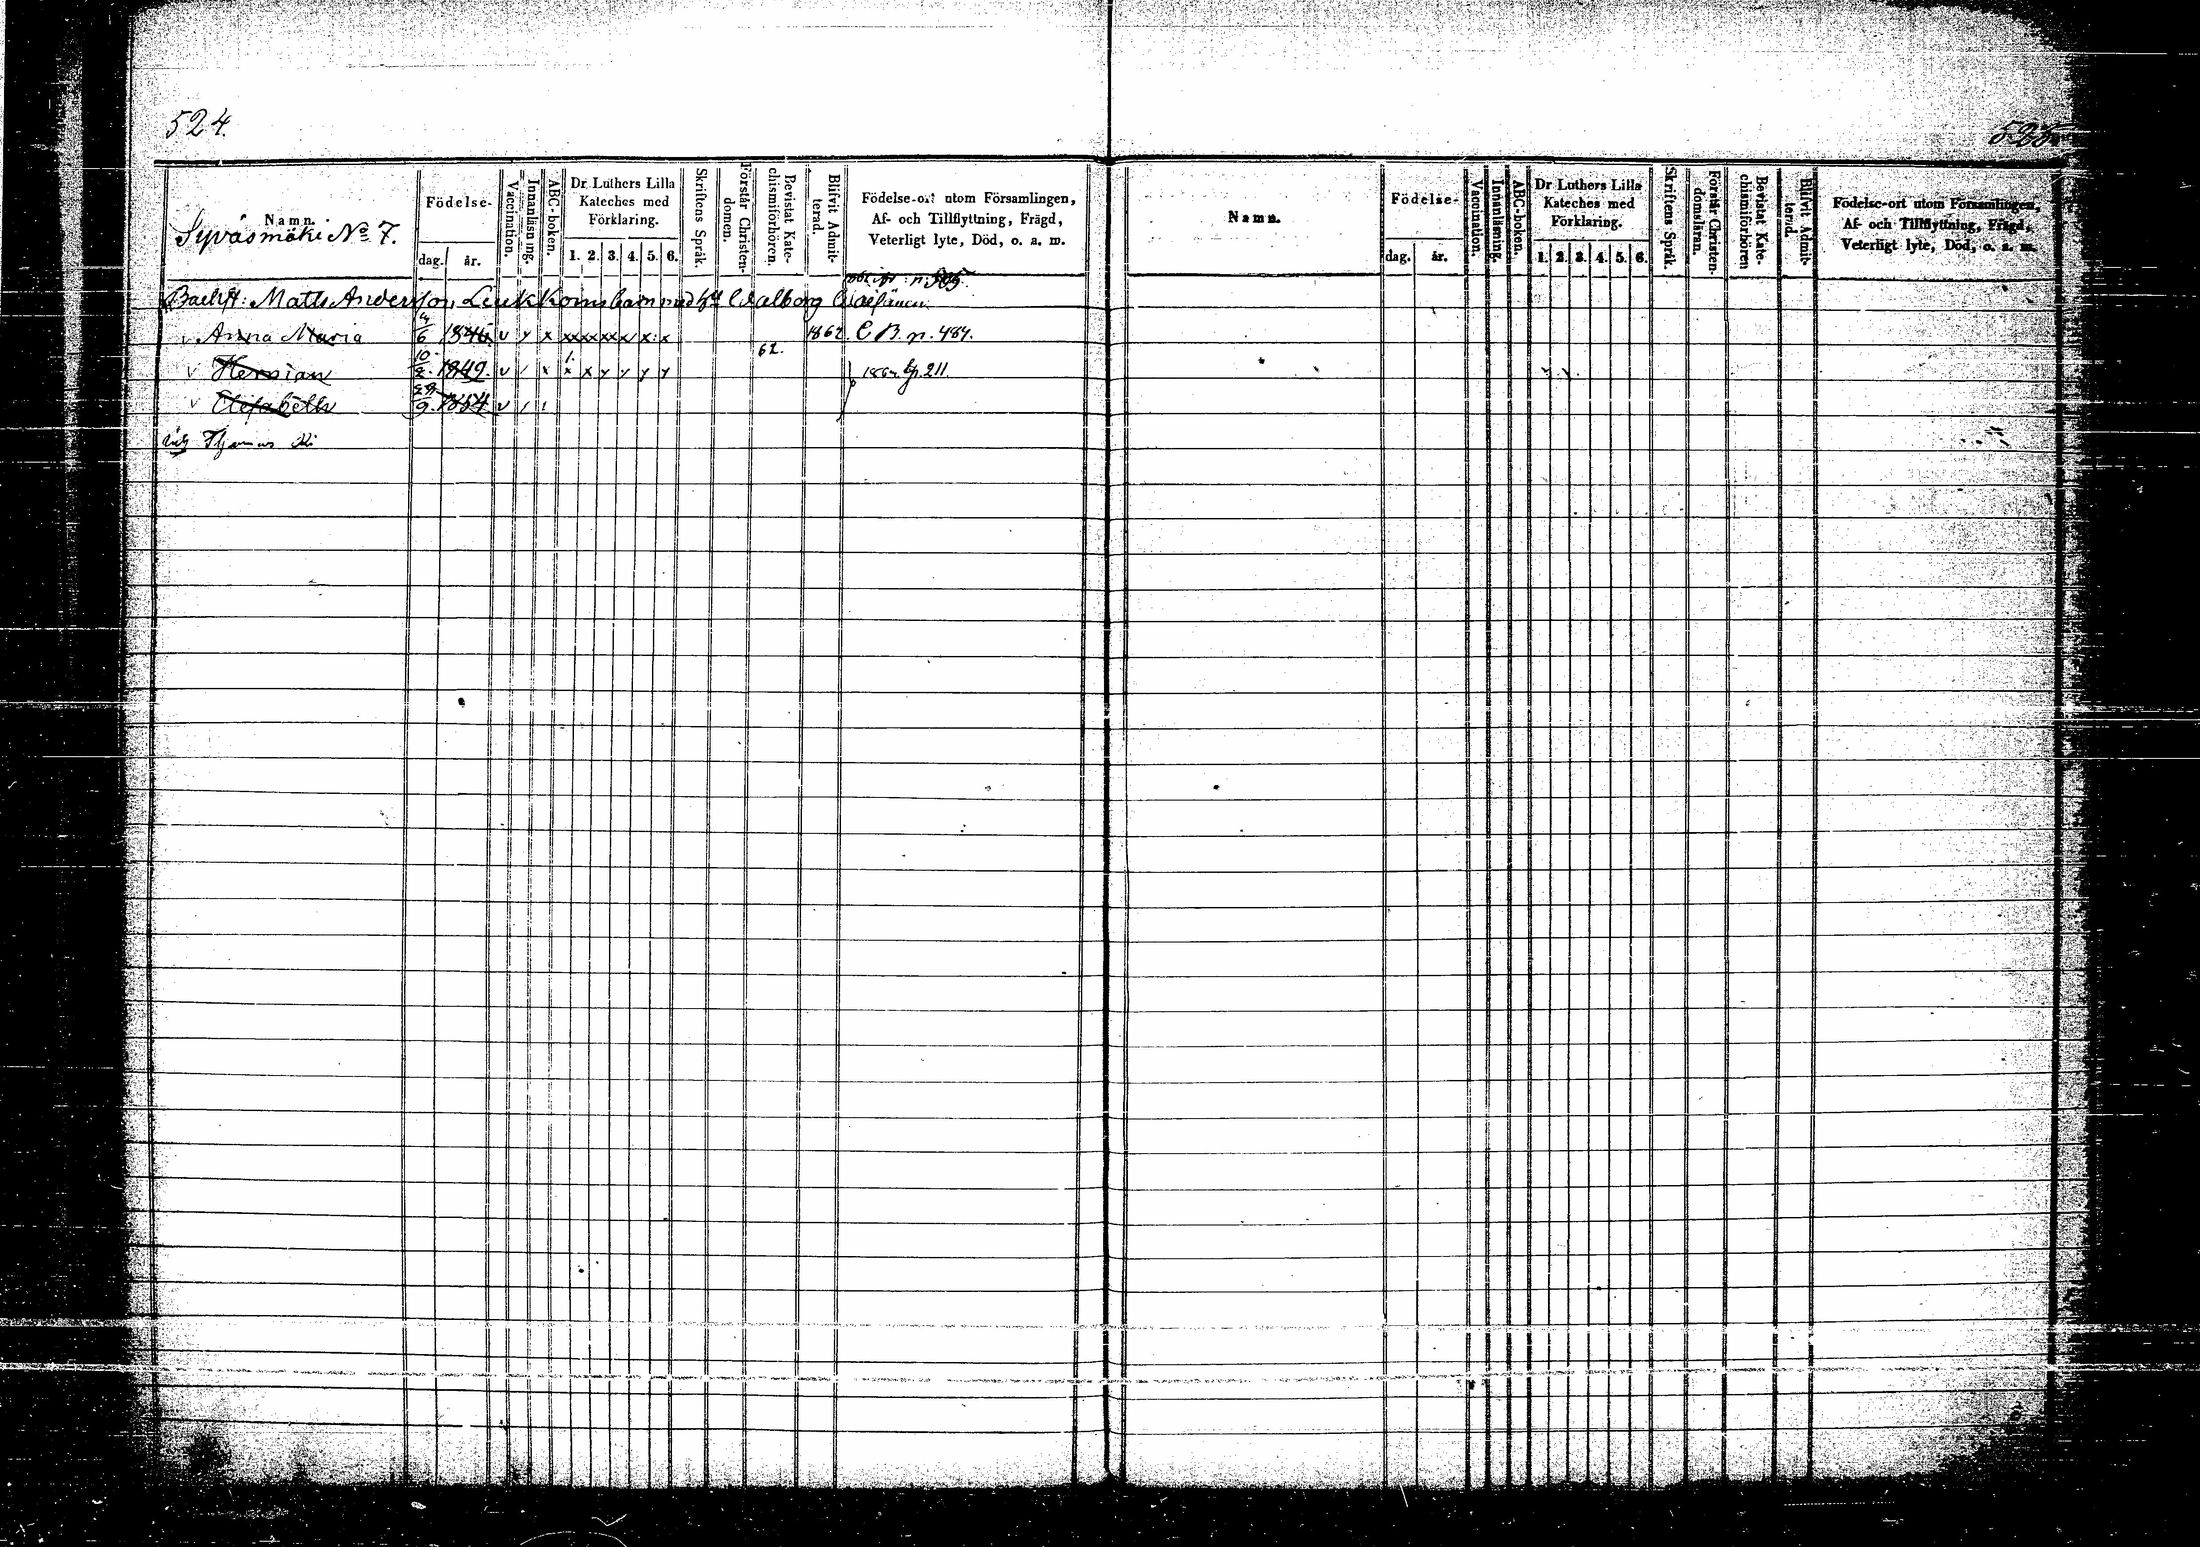 524.
525
Namn.
Syväsmäki No 7.
Födelse-
dag. år.
Vaccination.
Innanläsning.
ABC-boken.
Dr. Luthers Lilla
Kateches med
Förklaring.
1. 2. 3. 4. 5. 6.
Skriftens Språk.
Förstår Christen-
domen.
Bevistat Kate-
chismiförhören.
Blifvit Admit-
terad.
Födelse-ort utom Församlingen,
Af- och Tillflyttning, Frägd,
Veterligt lyte, Död, o. a. m.
p. 505.
Matts Andersson barn med Walborg
v Anna Maria 6 1846 v y x x x x x x x 1862. C B. p. 484.
62.
v Herman 10/2 1849. v / x x x y y y y 1864. p. 211
v Elisabeth 9. 1854 v / /
Thomas
Namn.
Födelse-
dag. år.
Vaccination.
Innanläsning.
ABC-boken.
Dr. Luthers Lilla
Kateches med
Förklaring.
1. 2. 3. 4. 5. 6.
Skriftens Språk.
Förstår Christen-
domsläran.
Bevistat Kate-
chismiförhören
Blifvit Admit-
terad.
Födelse-ort utom Församlingen,
Af- och Tillflyttning, Frägd,
Veterligt lyte, Död, o. a. m.